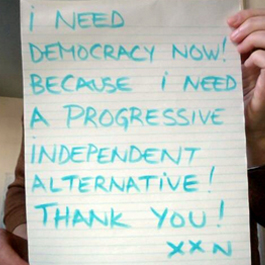 i NEED
DEMOCRACY NOW!
BECAUSE i NEED
A PROGRESSIVE
INDEPENDENT
ALTERNATiVE!
THANK YOU!
XXN